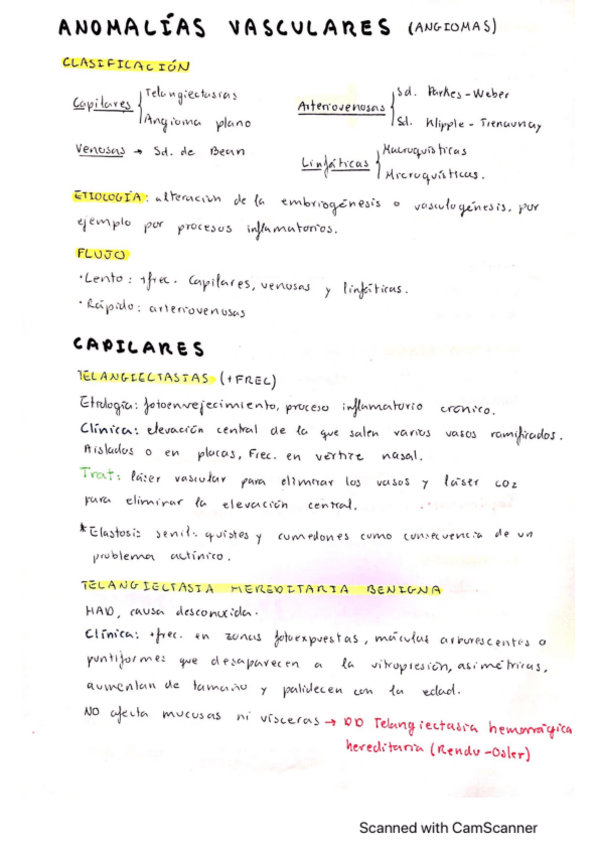 ANOMALÍAS VASCULARES (ANGIOMAS)
CLASIFICACIÓN
Capilares { Telangiectasias
Angioma plano
Venosas → Sd. de Bean
Arteriovenosas { Sd. Parkes-Weber
Sd. Klipple-Trenaunay
Linfáticas { Macroquísticas
Microquísticas.
ETIOLOGÍA: alteración de la embriogénesis o vasculogénesis. por
ejemplo por procesos inflamatorios.
FLUJO
·Lento: +frec. Capilares, venosas y linfáticas.
·Rápido: arteriovenosas
CAPILARES
TELANGIECTASIAS (+FREC)
Etiología: fotoenvejecimiento, proceso inflamatorio crónico.
Clínica: elevación central de la que salen varios vasos ramificados.
Aisladas o en placas, Frec. en vértice nasal.
Trat: láser vascular para eliminar los vasos y láser CO2
para eliminar la elevación central.
*Elastosis senil: quistes y comedones como consecuencia de un
problema actínico.
TELANGIECTASIA HEREDITARIA BENIGNA
HAD, causa desconocida.
Clínica: +frec. en zonas fotoexpuestas, máculas arborescentes o
puntiformes que desaparecen a la vitropresión, asimétricas,
aumentan de tamaño y palidecen con la edad.
NO afecta mucosas ni vísceras → DD Telangiectasia hemorrágica
hereditaria (Rendu-Osler)
Scanned with CamScanner